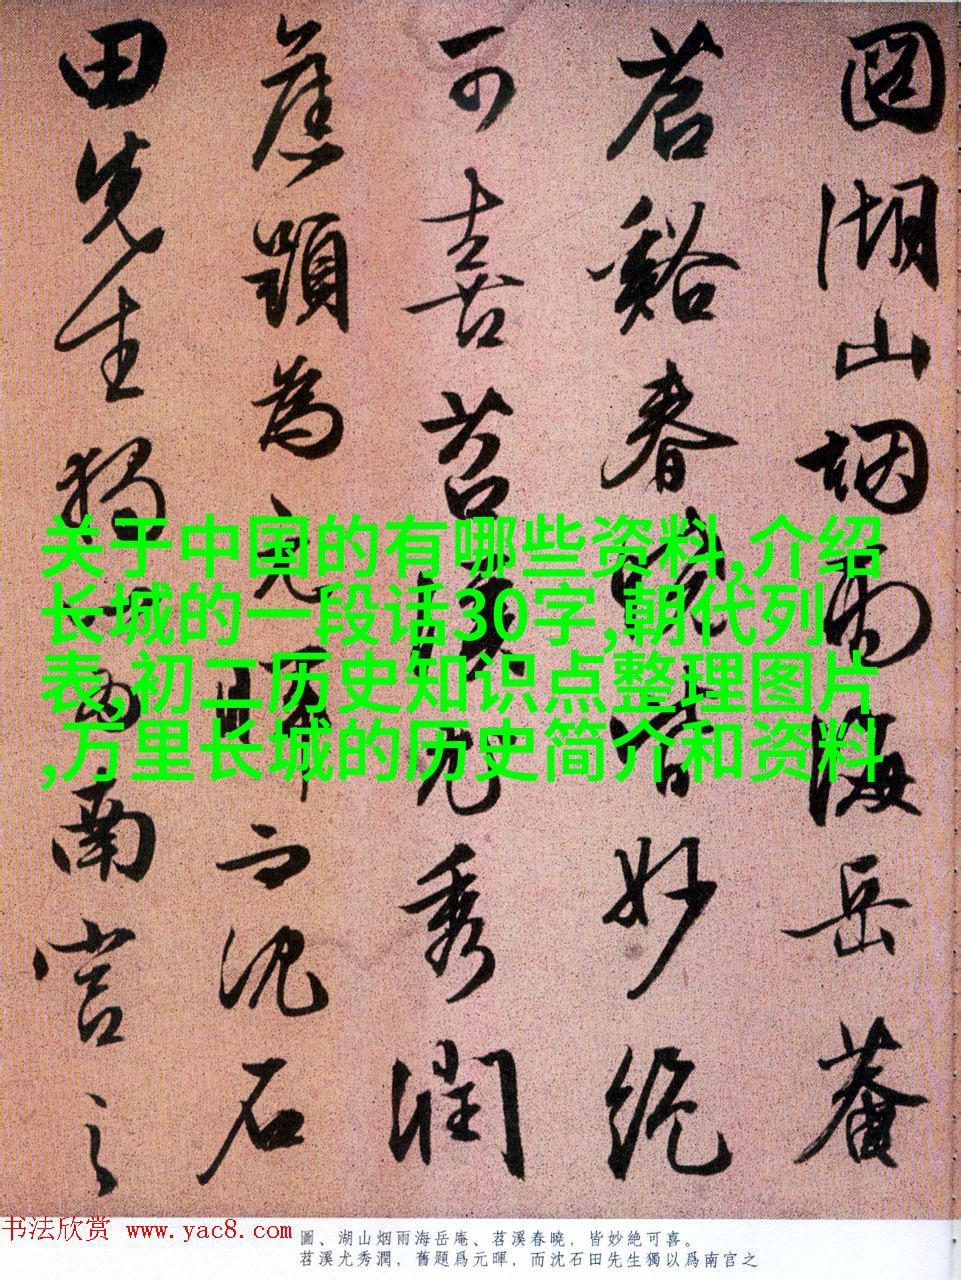 圖湖山烟雨海岳菴
苕谿春曉皆妙絶
可喜苕溪尤秀潤
舊題為元暉而沈石
田先生獨以為南宫之
关于中国的有哪些资料,介绍
长城的一段话30字,朝代列
表,初二历史知识点整理图片
,万里长城的历史简介和资料
圖、湖山烟雨海岳庵、苕溪春曉，皆妙絶可喜。
苕溪尤秀潤，舊題爲元暉，而沈石田先生獨以爲南宫之
书法欣赏 www.yac8.com